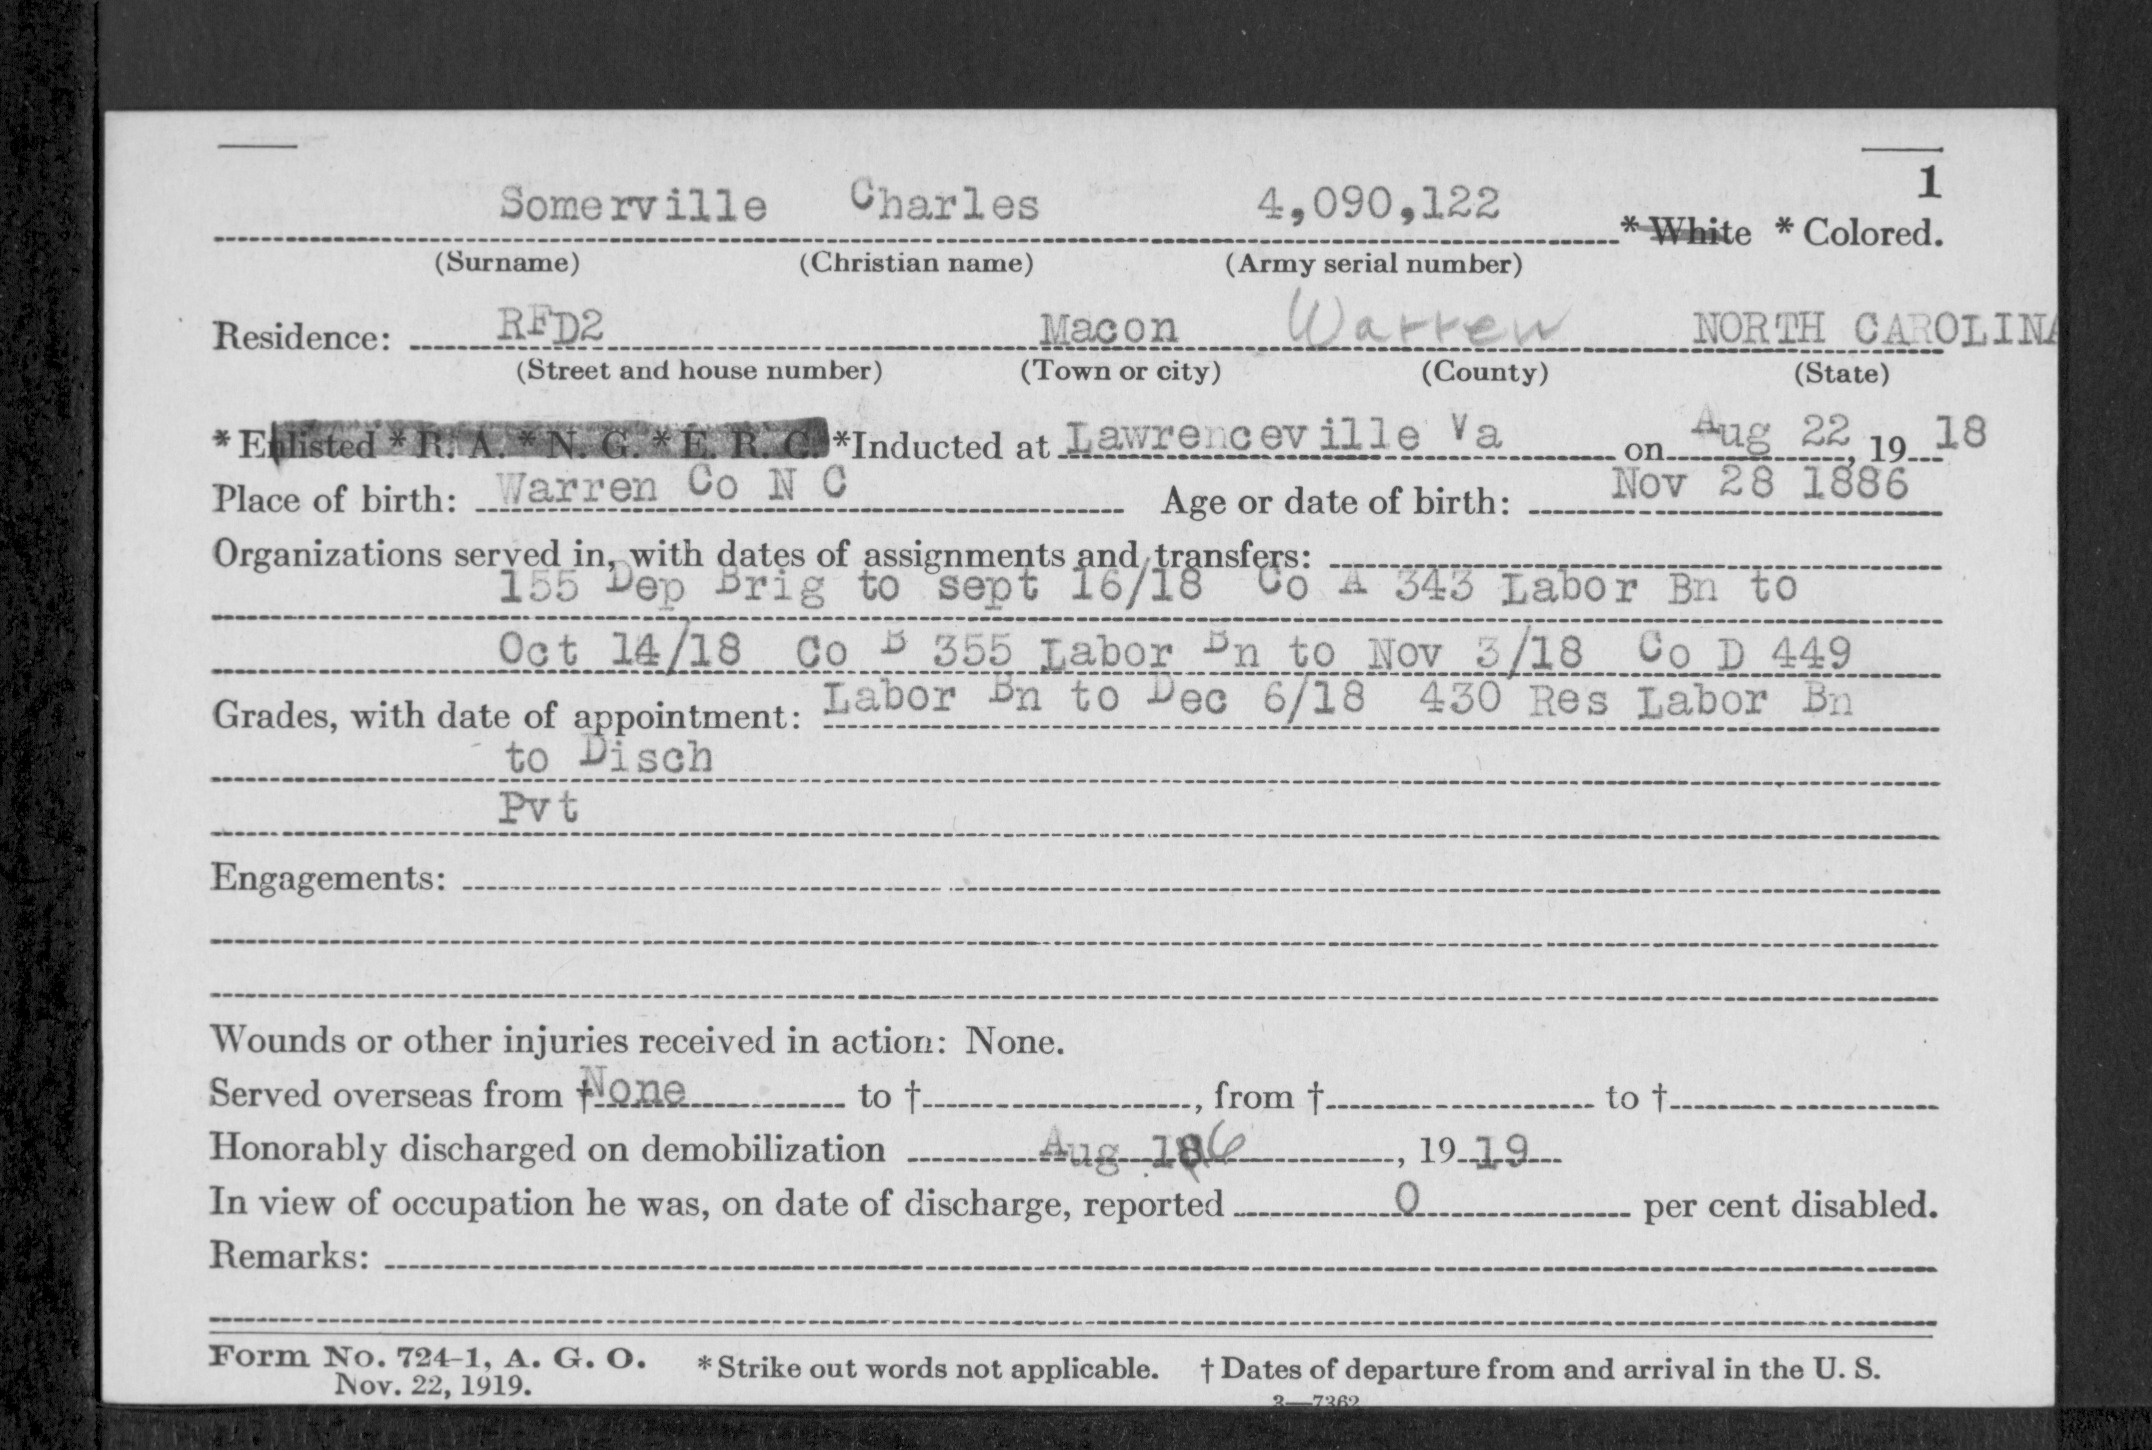 1
Somerville Charles 4,090,122 * White * Colored.
(Surname) (Christian name) (Army serial number)
Residence: RFD2 Macon Warren NORTH CAROLINA
(Street and house number) (Town or city) (County) (State)
* Enlisted * R. A. * N. G. * E. R. C. *Inducted at Lawrenceville Va on Aug 22, 19 18
Place of birth: Warren Co N C Age or date of birth: Nov 28 1886
Organizations served in, with dates of assignments and transfers:
155 Dep Brig to sept 16/18 Co A 343 Labor Bn to
Oct 14/18 Co B 355 Labor Bn to Nov 3/18 Co D 449
Grades, with date of appointment: Labor Bn to Dec 6/18 430 Res Labor Bn
to Disch
Pvt
Engagements:
Wounds or other injuries received in action: None.
Served overseas from † None to †, from † to †
Honorably discharged on demobilization Aug 16, 19 19
In view of occupation he was, on date of discharge, reported 0 per cent disabled.
Remarks:
Form No. 724-1, A. G. O. * Strike out words not applicable. † Dates of departure from and arrival in the U. S.
Nov. 22, 1919.
3—7362